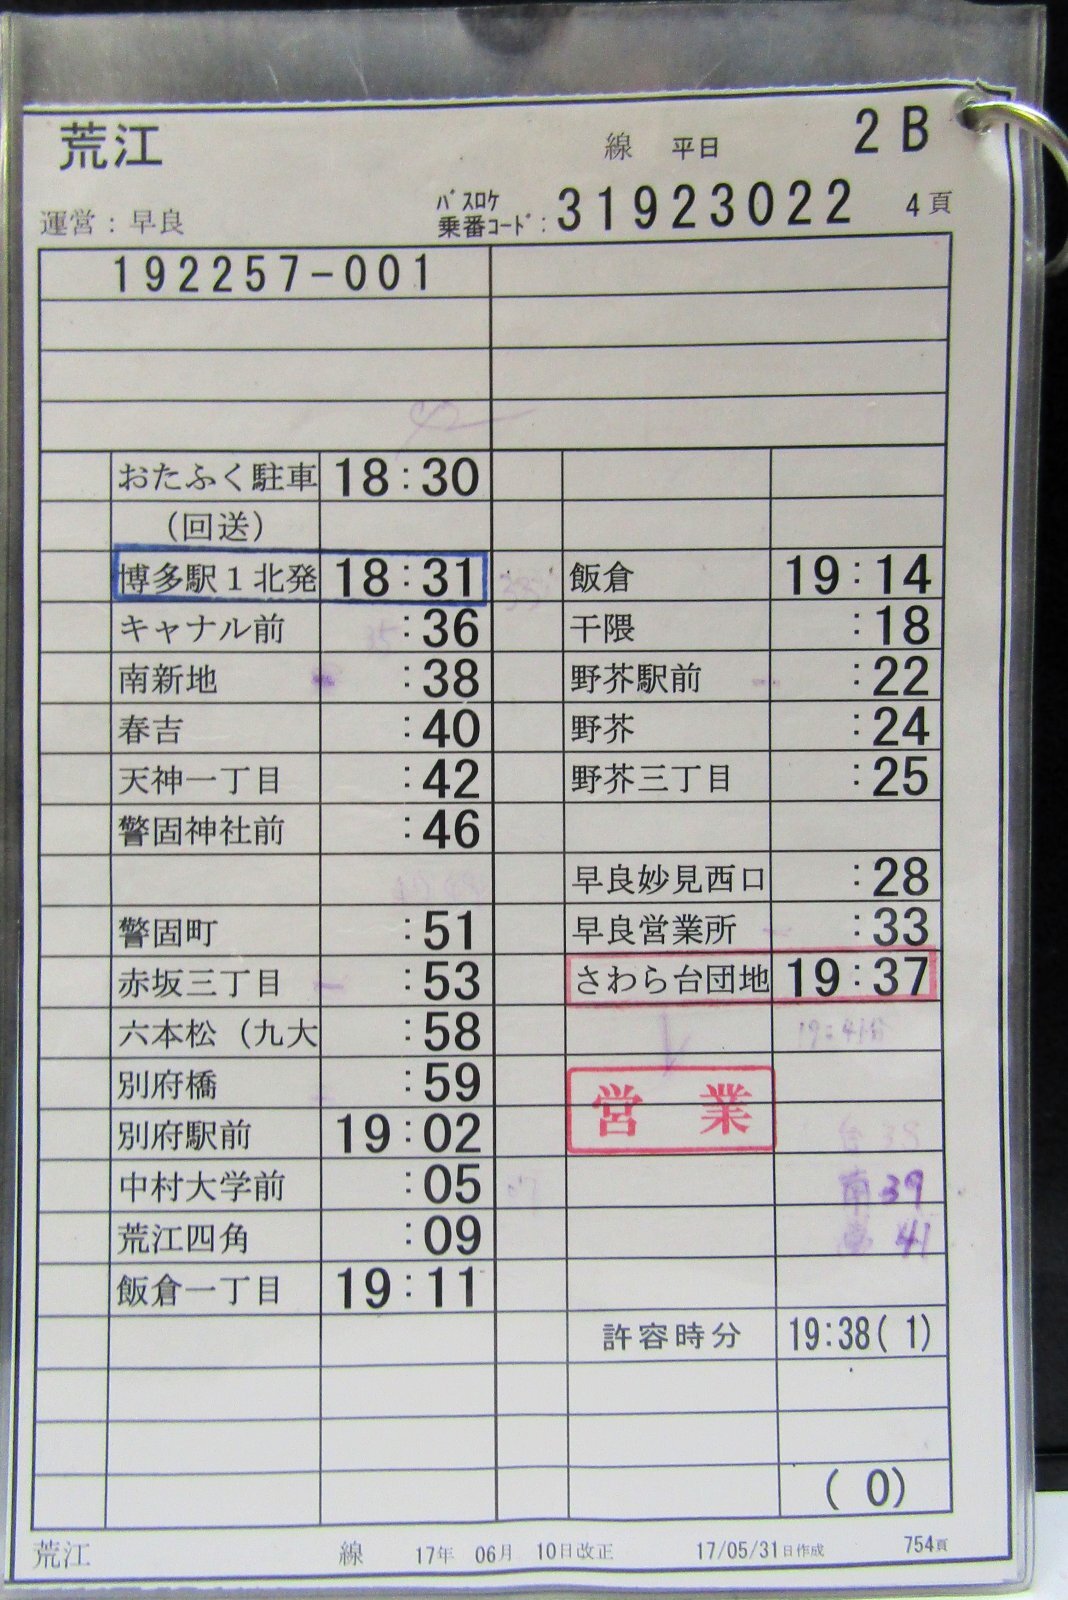 荒江 線 平日 2B
運営：早良 バスロケ乗番コード：31923022 4頁
192257-001
おたふく駐車 18:30
（回送）
博多駅１北発 18:31
キャナル前 :36
南新地 :38
春吉 :40
天神一丁目 :42
警固神社前 :46
警固町 :51
赤坂三丁目 :53
六本松（九大 :58
別府橋 :59
別府駅前 19:02
中村大学前 :05
荒江四角 :09
飯倉一丁目 19:11
飯倉 19:14
干隈 :18
野芥駅前 :22
野芥 :24
野芥三丁目 :25
早良妙見西口 :28
早良営業所 :33
さわら台団地 19:37
19:41分
営業
南39
41
許容時分 19:38( 1)
( 0)
荒江 線 17年 06月 10日改正 17/05/31日作成 754頁